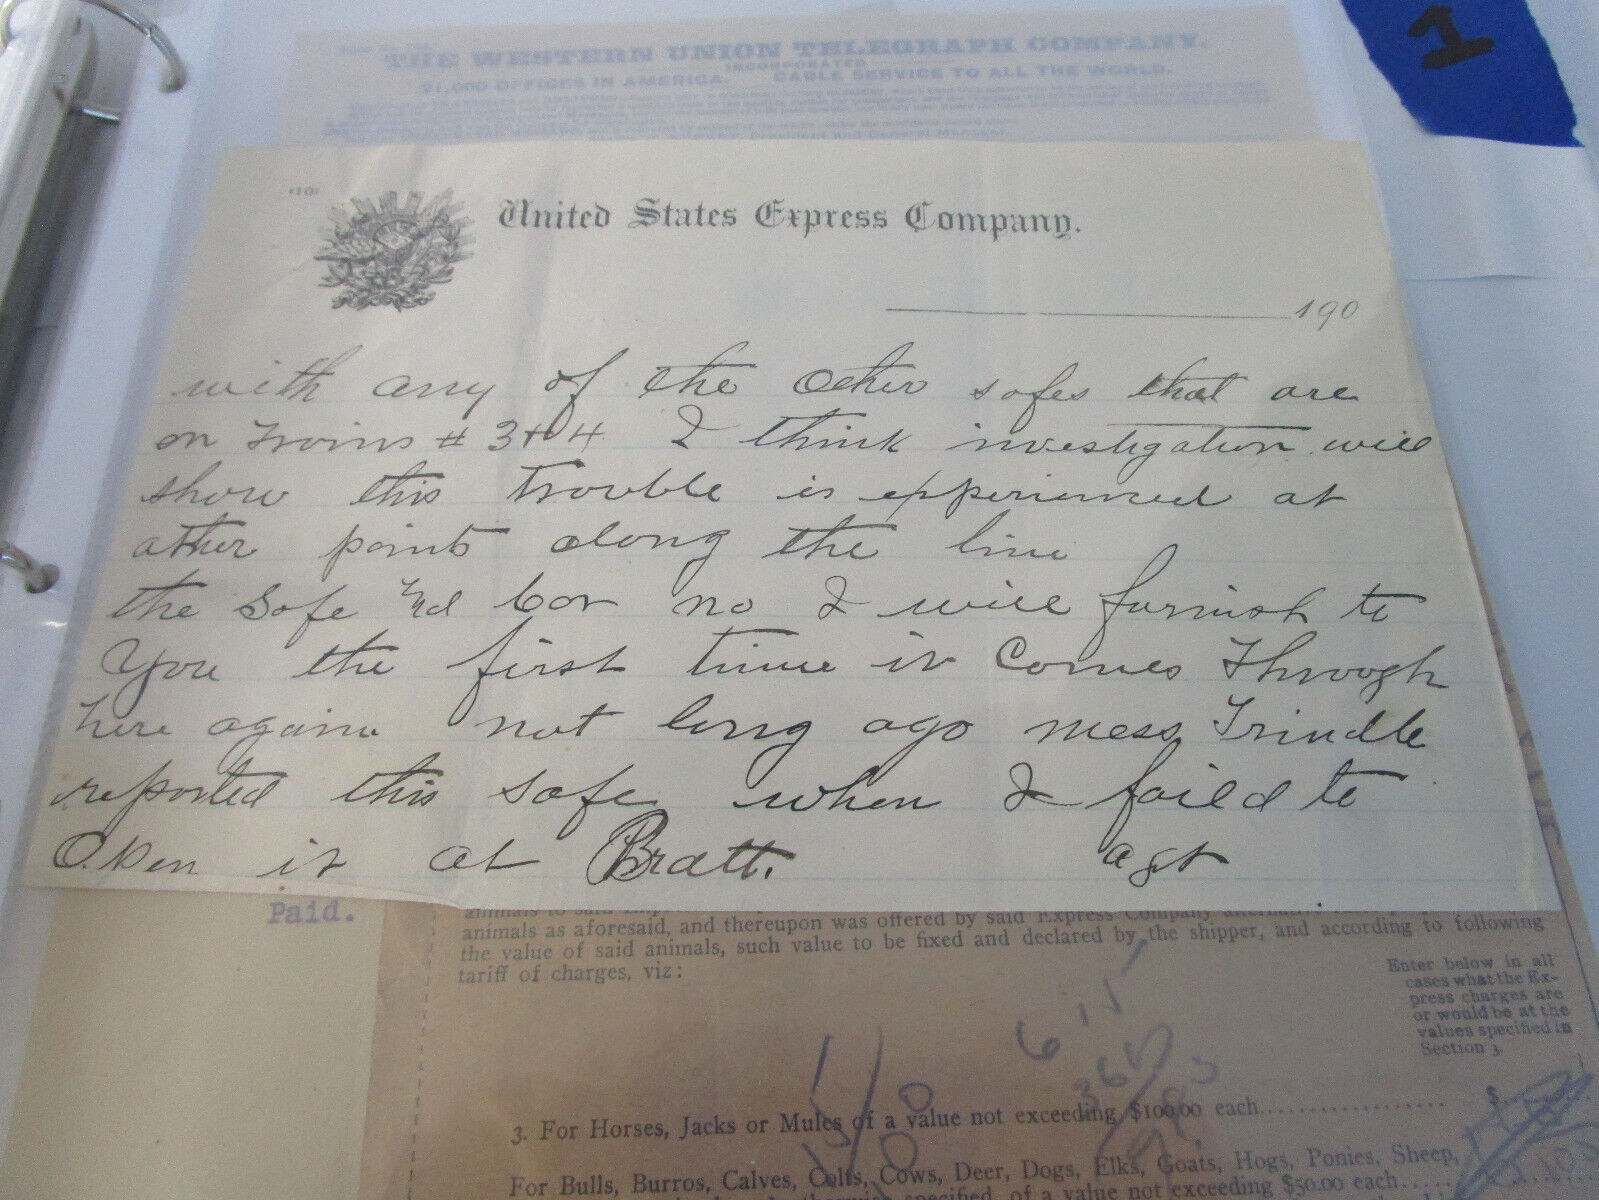 1
THE WESTERN UNION TELEGRAPH COMPANY.
INCORPORATED
21,000 OFFICES IN AMERICA. CABLE SERVICE TO ALL THE WORLD.
(10)
United States Express Company.
190
with any of the other safes that are
on Trains # 3+4 I think investigation will
show this trouble is experienced at
other points along the line
the safe and car no I will furnish to
you the first time it comes through
here again not long ago mess Trindle
reported this safe when I faild to
open it at Bratt. agt
Paid.
animals as aforesaid, and thereupon was offered by said Express Company
the value of said animals, such value to be fixed and declared by the shipper, and according to following
tariff of charges, viz:
Enter below in all
cases what the Ex-
press charges are
or would be at the
values specified in
Section 3.
3. For Horses, Jacks or Mules of a value not exceeding $100.00 each.................... $
For Bulls, Burros, Calves, Colts, Cows, Deer, Dogs, Elks, Goats, Hogs, Ponies, Sheep,
specified, of a value not exceeding $50.00 each